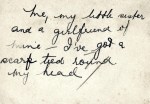 Me, my little sister
and a girlfriend of
mine – I've got a
scarf tied round
my head